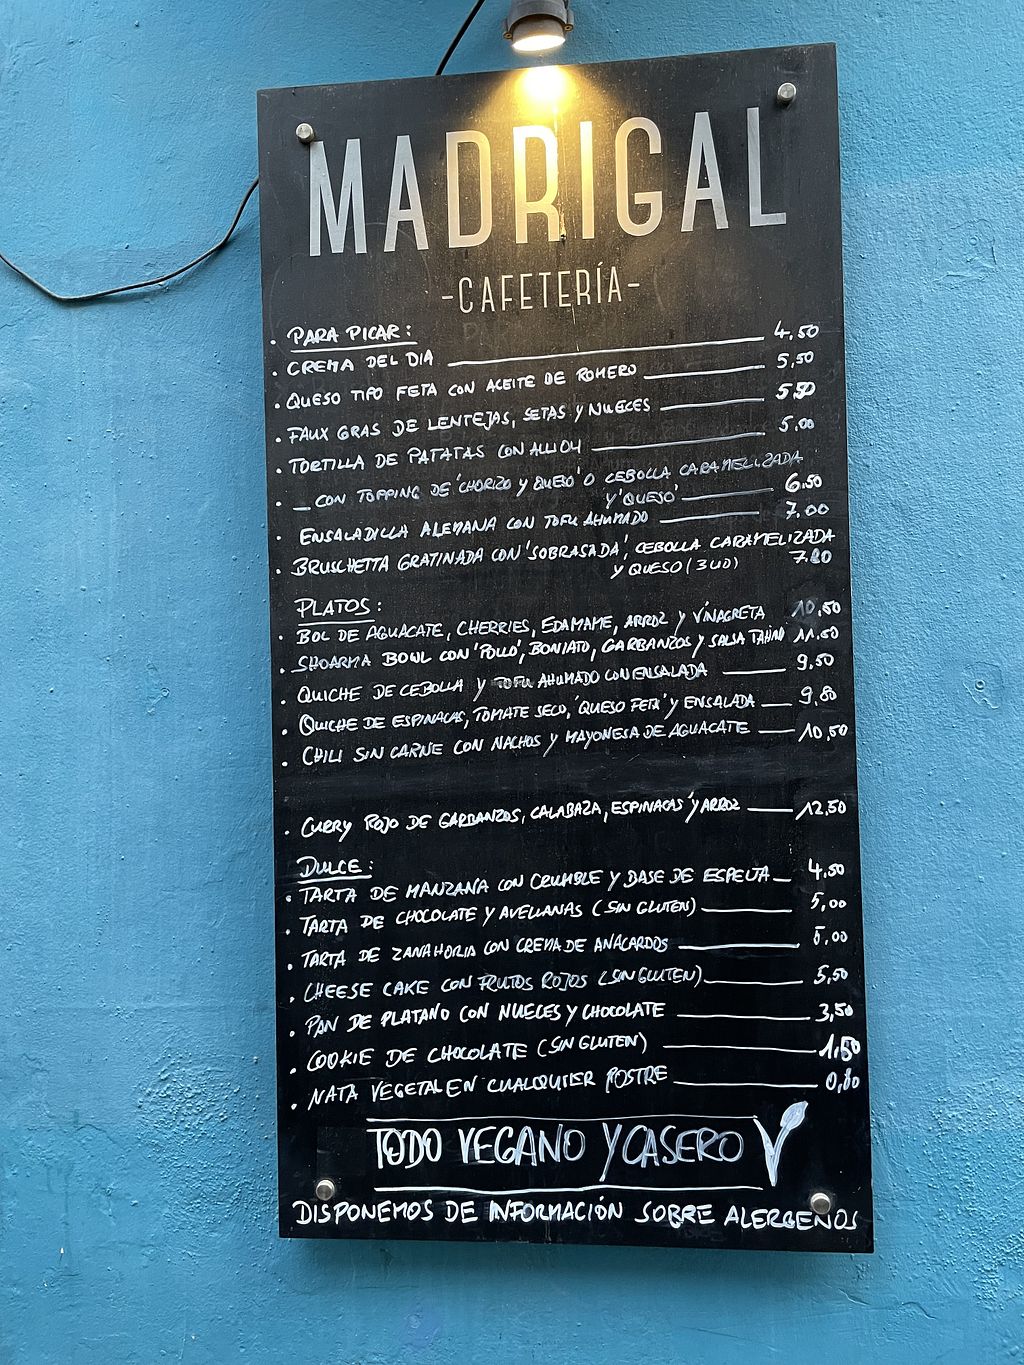 MADRIGAL
-CAFETERÍA-
PARA PICAR:
. CREMA DEL DIA 4,50
. QUESO TIPO FETA CON ACEITE DE ROMERO 5,50
. FAUX GRAS DE LENTEJAS, SETAS Y NUECES 5,50
. TORTILLA DE PATATAS CON ALLIOLI 5,00
. _ CON TOPPING DE 'CHORIZO Y QUESO' O CEBOLLA CARAMELIZADA
Y 'QUESO' 6,50
. ENSALADILLA ALEMANA CON TOFU AHUMADO 7,00
. BRUSCHETTA GRATINADA CON 'SOBRASADA', CEBOLLA CARAMELIZADA
Y QUESO (3 UD)
PLATOS:
. BOL DE AGUACATE, CHERRIES, EDAMAME, ARROZ Y VINAGRETA 10,50
. SHOARMA BOWL CON 'POLLO', BONIATO, GARBANZOS Y SALSA TAHINI 11,50
. QUICHE DE CEBOLLA Y TOFU AHUMADO CON ENSALADA 9,50
. QUICHE DE ESPINACAS, TOMATE SECO, 'QUESO FETA' Y ENSALADA 9,80
. CHILI SIN CARNE CON NACHOS Y MAYONESA DE AGUACATE 10,50
. CURRY ROJO DE GARBANZOS, CALABAZA, ESPINACAS Y ARROZ 12,50
DULCE:
. TARTA DE MANZANA CON CRUMBLE Y BASE DE ESPELTA 4,50
. TARTA DE CHOCOLATE Y AVELLANAS (SIN GLUTEN) 5,00
. TARTA DE ZANAHORIA CON CREMA DE ANACARDOS 5,00
. CHEESE CAKE CON FRUTOS ROJOS (SIN GLUTEN) 5,50
. PAN DE PLATANO CON NUECES Y CHOCOLATE 3,50
. COOKIE DE CHOCOLATE (SIN GLUTEN) 1,50
. NATA VEGETAL EN CUALQUIER POSTRE 0,80
TODO VEGANO Y CASERO
DISPONEMOS DE INFORMACIÓN SOBRE ALERGENOS